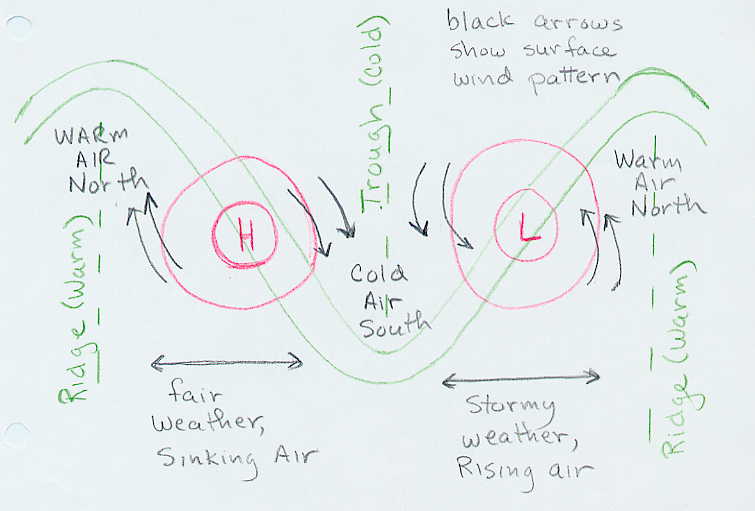 black arrows
show surface
wind pattern
Trough (Cold)
WARM
AIR
North
Warm
Air
North
H
L
Cold
Air
South
Ridge (Warm)
Ridge (Warm)
fair
Weather,
Sinking Air
Stormy
weather,
Rising air